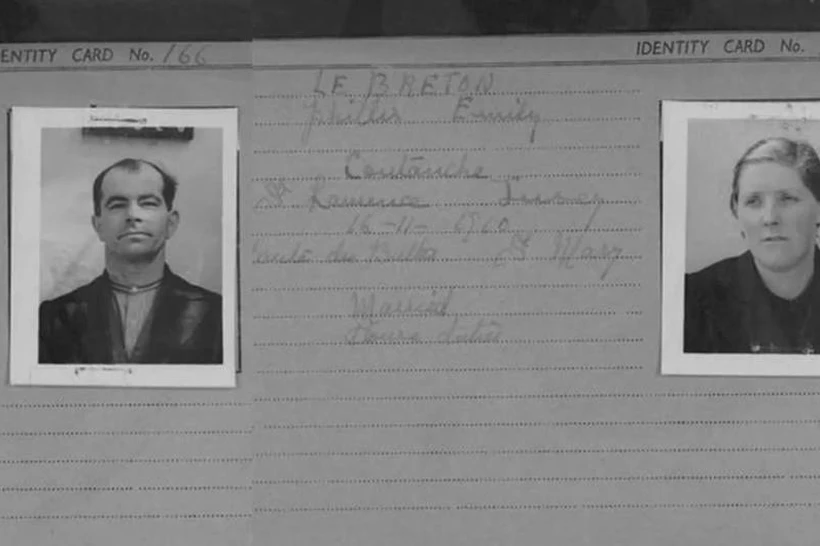 IDENTITY CARD No. 166
IDENTITY CARD No.
LE BRETON
Phillis Emily
Coutanche
St Lawrence Jersey
16-11-1910
du St Mary
Married
House duties